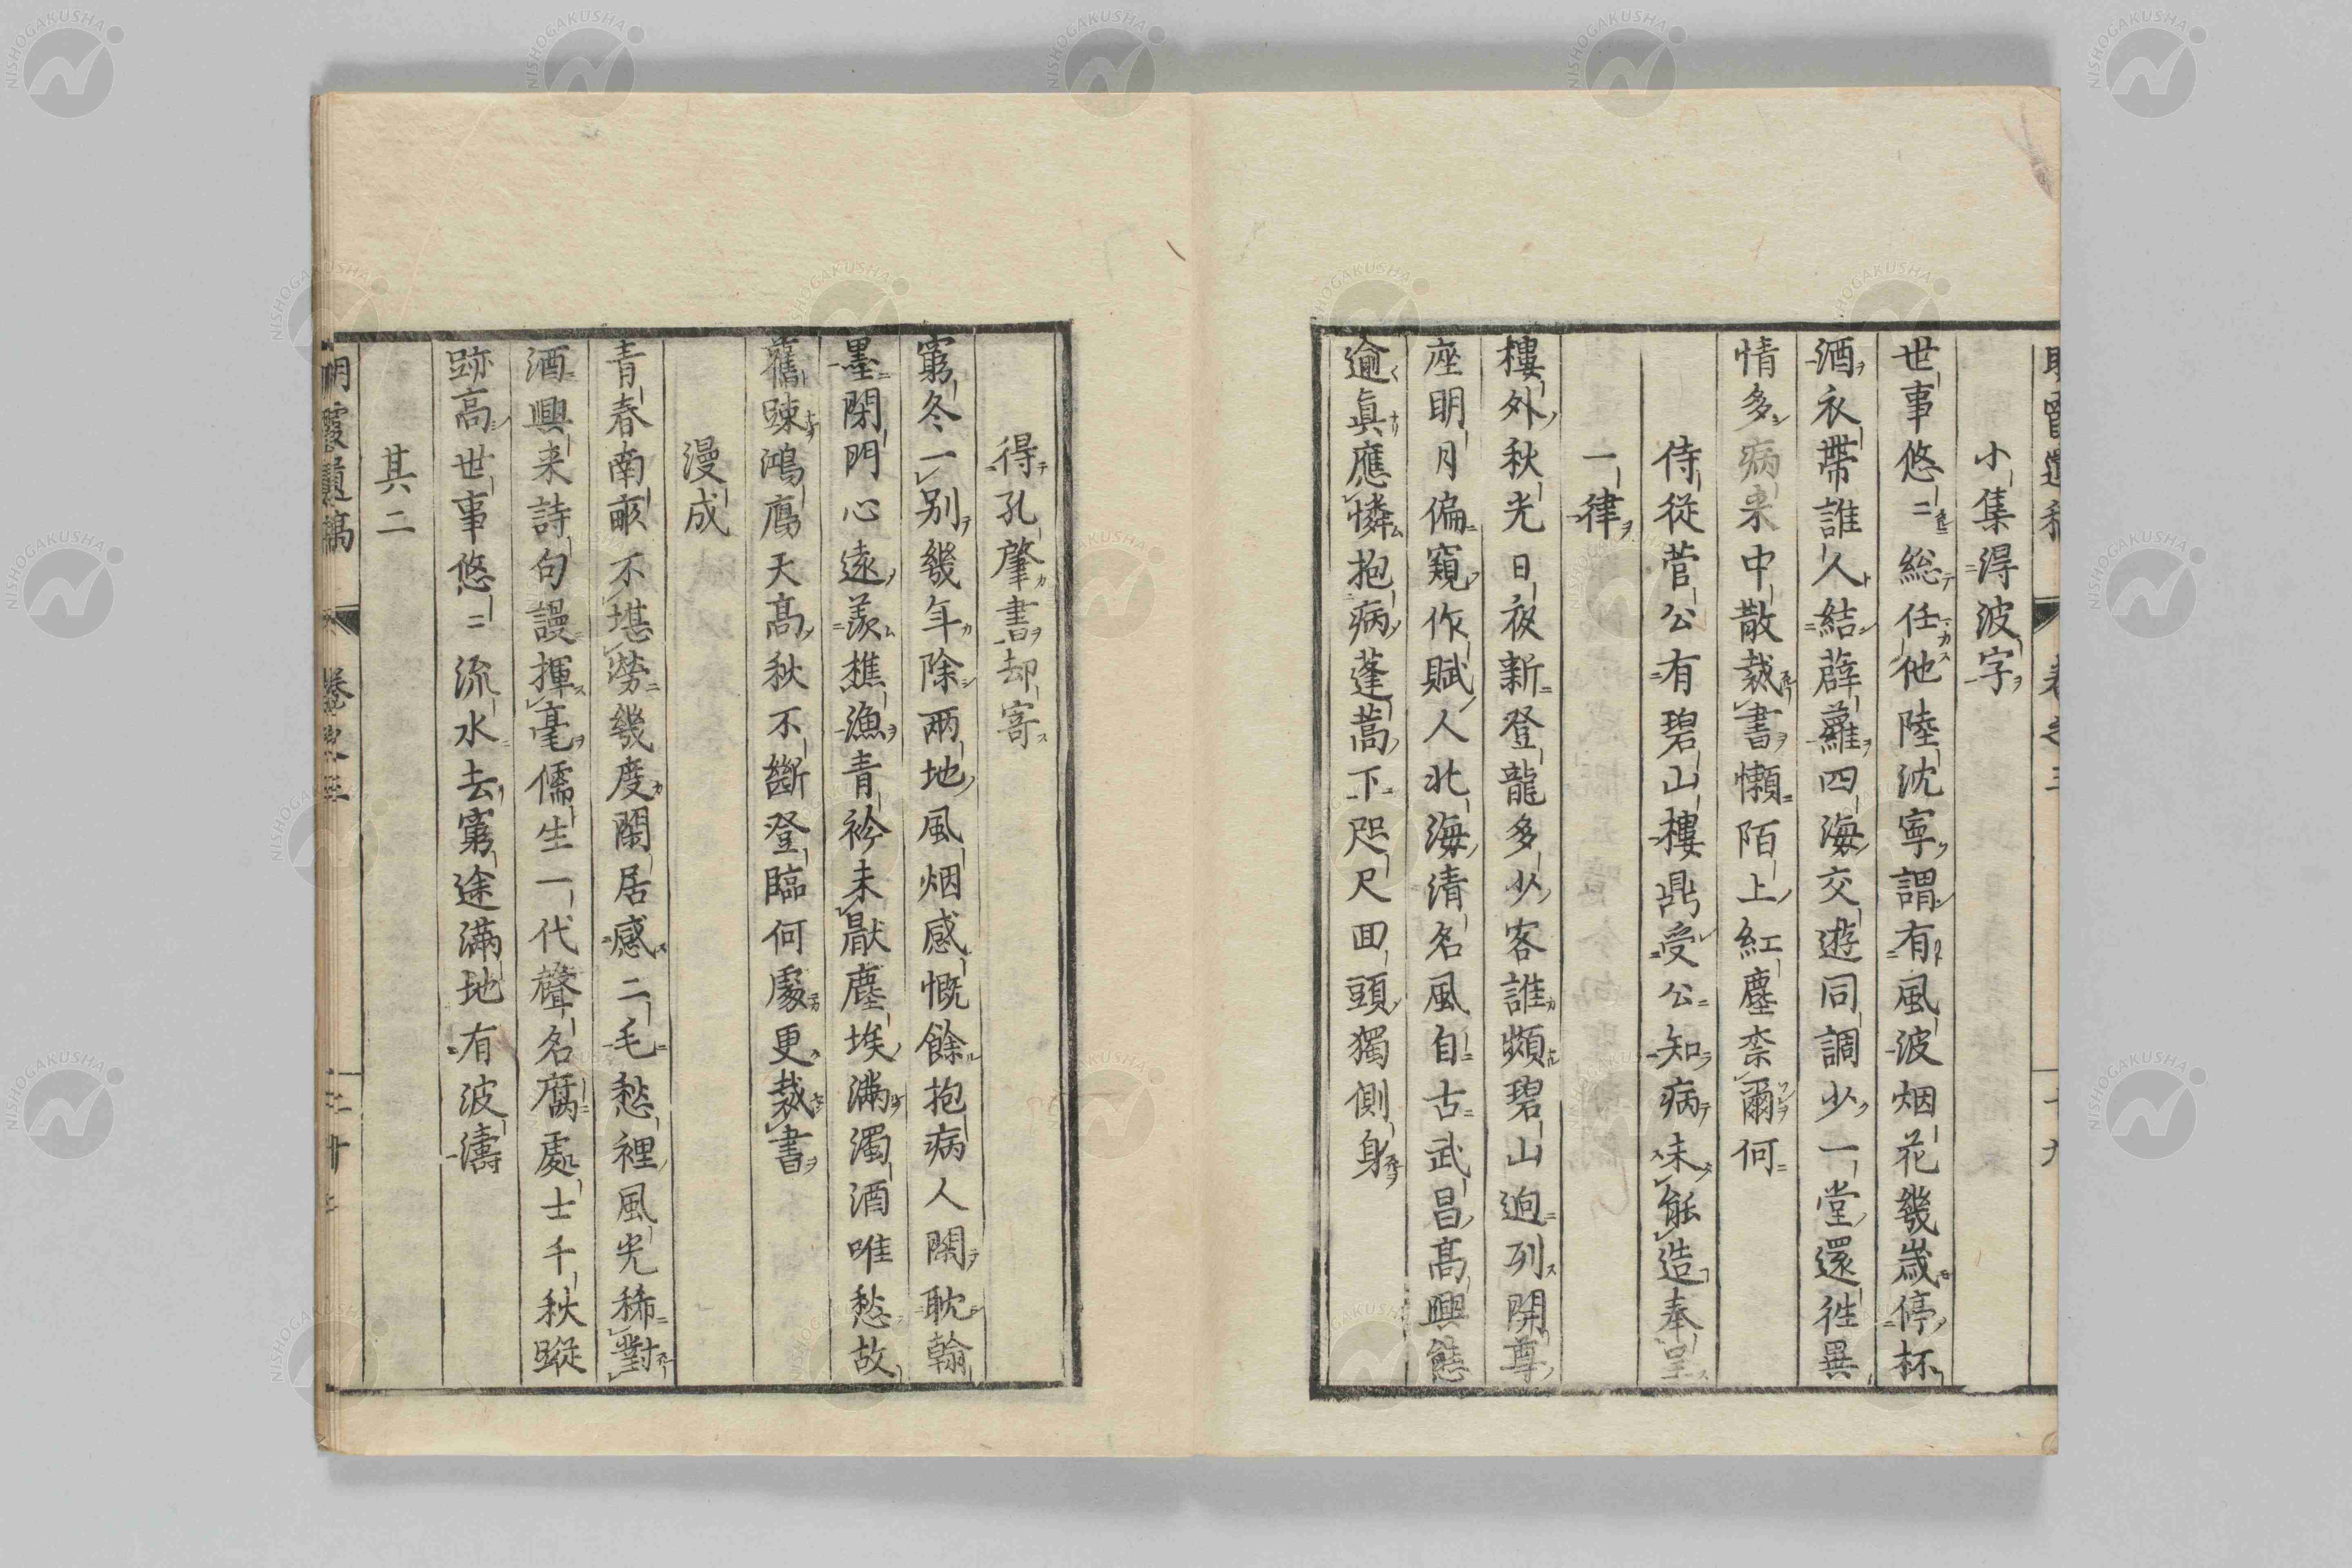 小集得波字
世事悠〻総任他陸沈寧謂有風波烟花幾歳停杯
酒衣帶誰人結薜蘿四海交遊同調少一堂還徃異
情多病来中散裁書懶陌上紅塵柰爾何
侍從菅公有碧山樓鼎受公知病未能造奉呈
一律
樓外秋光日夜新登龍多少客誰頻碧山逈列開尊
座明月偏窺作賦人北海清名風自古武昌高興態
逾眞應憐抱病蓬蒿下咫尺回頭獨側身
得孔肇書却寄
窮冬一別幾年除兩地風烟感慨餘抱病人閑耽翰
墨閑門心遠羨樵漁青衿未厭塵埃滿濁酒唯愁故
舊疎鴻鴈天高秋不斷登臨何處更裁書
漫成
青春南畝不堪勞幾度閑居感二毛愁裡風光稀對
酒興来詩句謾揮毫儒生一代聲名腐處士千秋蹤
跡高世事悠〻流水去窮途滿地有波濤
其二
明霞遺稿 卷之三